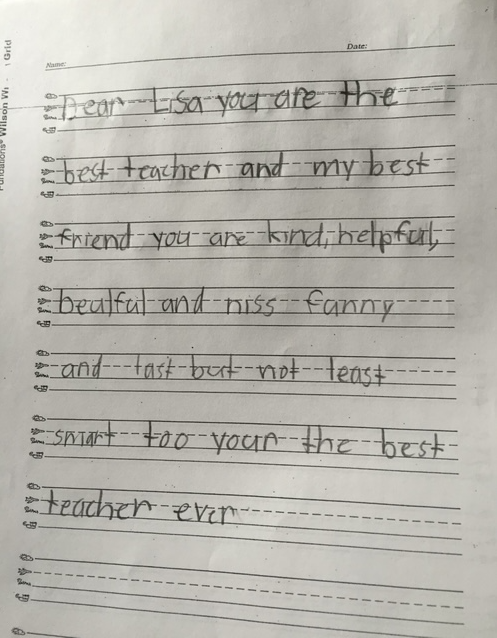 Date:
Name:
Dear Lisa you are the
best teacher and my best
friend you are kind, helpful,
beulful and niss funny
and last but not least
smart too your the best
teacher ever